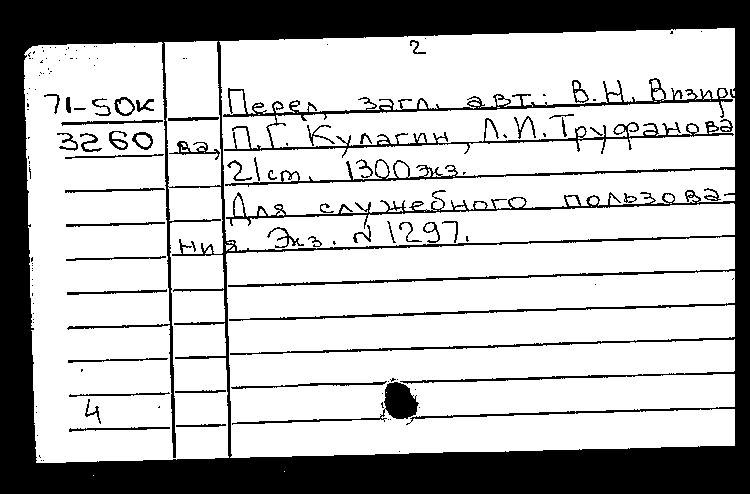 2
71-SOK Перед загл. авт.: В.Н. Визиро
3260 ва, П.Г. Кулагин, Л.И. Труфанова
21 ст. 1300 экз.
Для служебного пользова-
ния. Экз. N 1297.
4